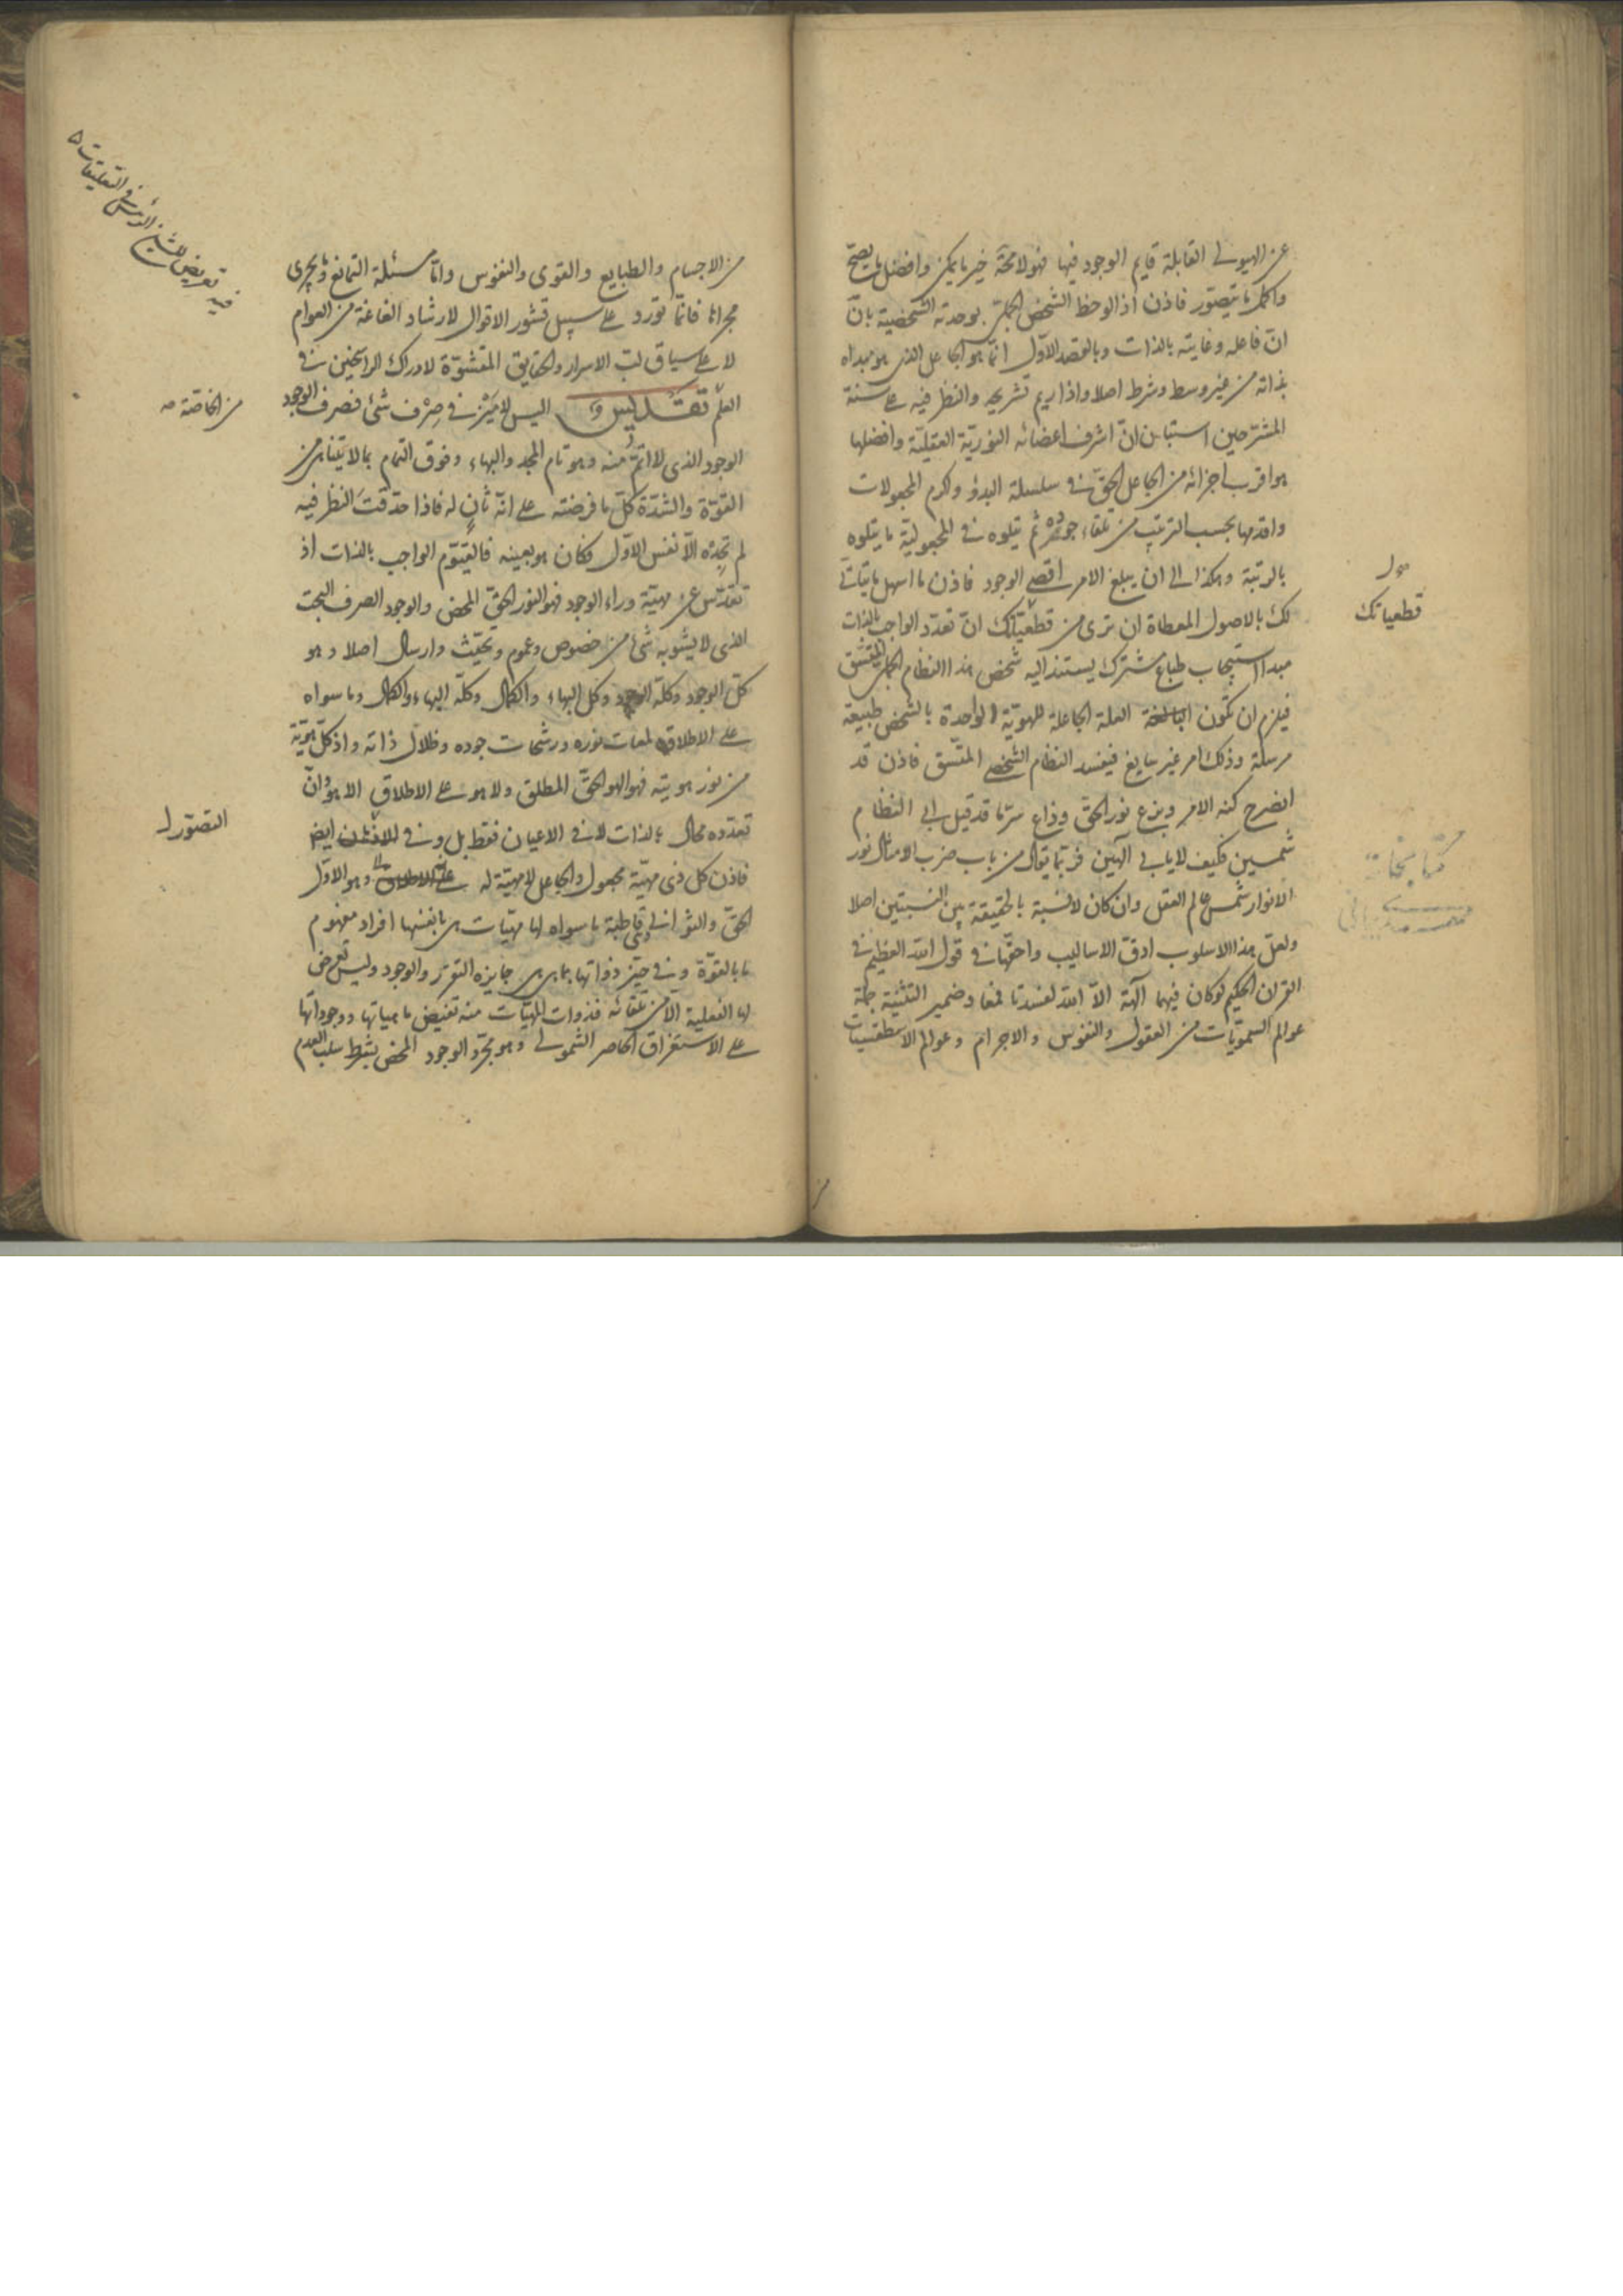 عن الهيولى القابلة قايم الوجود فيها فهو لا محة خير ما يمكن وافضل ما يصح
واكمل ما يتصور فاذن اذا لوحظ الشخص الجملى بوحدته الشخصية بان
ان فاعله وغايته بالذات وبالقصد الاول انما هو الجاعل الذى هو مبداه
بذاته من غير وسط وشرط اصلا واذا ريم تشريحه والنظر فيه على سنة
المشرحين استبان ان اشرف اعضائه النورية العقلية وافضلها
هو اقرب اجزائه من الجاعل الحق فى سلسلة البدو واكرم المجعولات
واقدمها بحسب الترتب من تلقاء جوهره ثم يتلوه فى المجعولية ما يتلوه
بالرتبة وهكذا الى ان يبلغ الامر اقصى الوجود فاذن ما اسهل ما يتاتى
لك بالاصول المعطاة ان ترى من قطعياتك ان تعدد الواجب بالذات
مبدا استيجاب طباع مشترك يستند اليه شخص هذا النظام الجملى المتسق
فيلزم ان تكون العلة الجاعلة للهوية الواحدة بالشخص طبيعة
مرسلة وذلك امر غير سايغ فيفسد النظام الشخصى المتسق فاذن قد
انصرح كنه الامر وبزغ نور الحق وذاع سر ما قد قيل ابى النظام
شمسين فكيف لا يابى الهين فربما يقال من باب ضرب الامثال نور
الانوار شمس عالم العقل وان كان لا نسبة بالحقيقة بين النسبتين اصلا
ولعل هذا الاسلوب ادق الاساليب واحقها فى قول الله العظيم فى
القران الحكيم لو كان فيهما آلهة الا الله لفسدتا فمغا وضمير التثنية جملة
عوالم السمويات من العقول والنفوس والاجرام وعوالم الاسطقسيات
قطعياتك
من الاجسام والطبايع والقوى والنفوس واما مسئلة التمانع وما يجرى
مجراها فانما تورد على سبيل قشور الاقوال لارشاد الغاغة من العوام
لا على سياق لب الاسرار والحقايق المتشوقة لادراك الراسخين فى
العلم تقديس اليس لا ميز فى صرف شئ فصرف الوجود
الوجود الذى لا اتم منه وهو تام المجد والبهاء وفوق التمام بما لا يتناهى من
القوة والشدة كل ما فرضته على انه ثان له فاذا حدقت النظر فيه
لم تجده الا نفس الاول فكان هو بعينه فالقيوم الواجب بالذات اذ
تقدس عن مهية وراء الوجود فهو النور الحق المحض والوجود الصرف البحت
الذى لا يشوبه شئ من خصوص وعموم وتحيث وارسال اصلا وهو
كل الوجود وكله الوجود وكل البهاء والكمال وكله البهاء والكمال وما سواه
على الاطلاق لمعات نوره ورشحات جوده وظلال ذاته واذ كل هوية
من نور هويته فهو الهو الحق المطلق ولا هو على الاطلاق الا هو وان
تعدده محال بالذات لا فى الاعيان فقط بل وفى ايضا
فاذن كل ذى مهية مجعول والجاعل لا مهية له وهو الاول
الحق والثوانى قاطبة ما سواه لها مهيات هى بانفسها افراد مفهوم
ما بالقوة وفى حيز ذواتها بما هى هى جايزه التقرر والوجود وليس تعرض
لها الفعلية الا من تلقائه فذوات المهيات منه تفيض ماهياتها ووجوداتها
على الاستغراق الحاصر الشمولى وهو مجرد الوجود المحض بشرط سلب العدم
فيه تعريض للشيخ الرئيس فى التعليقات
من الخاصة
التصور